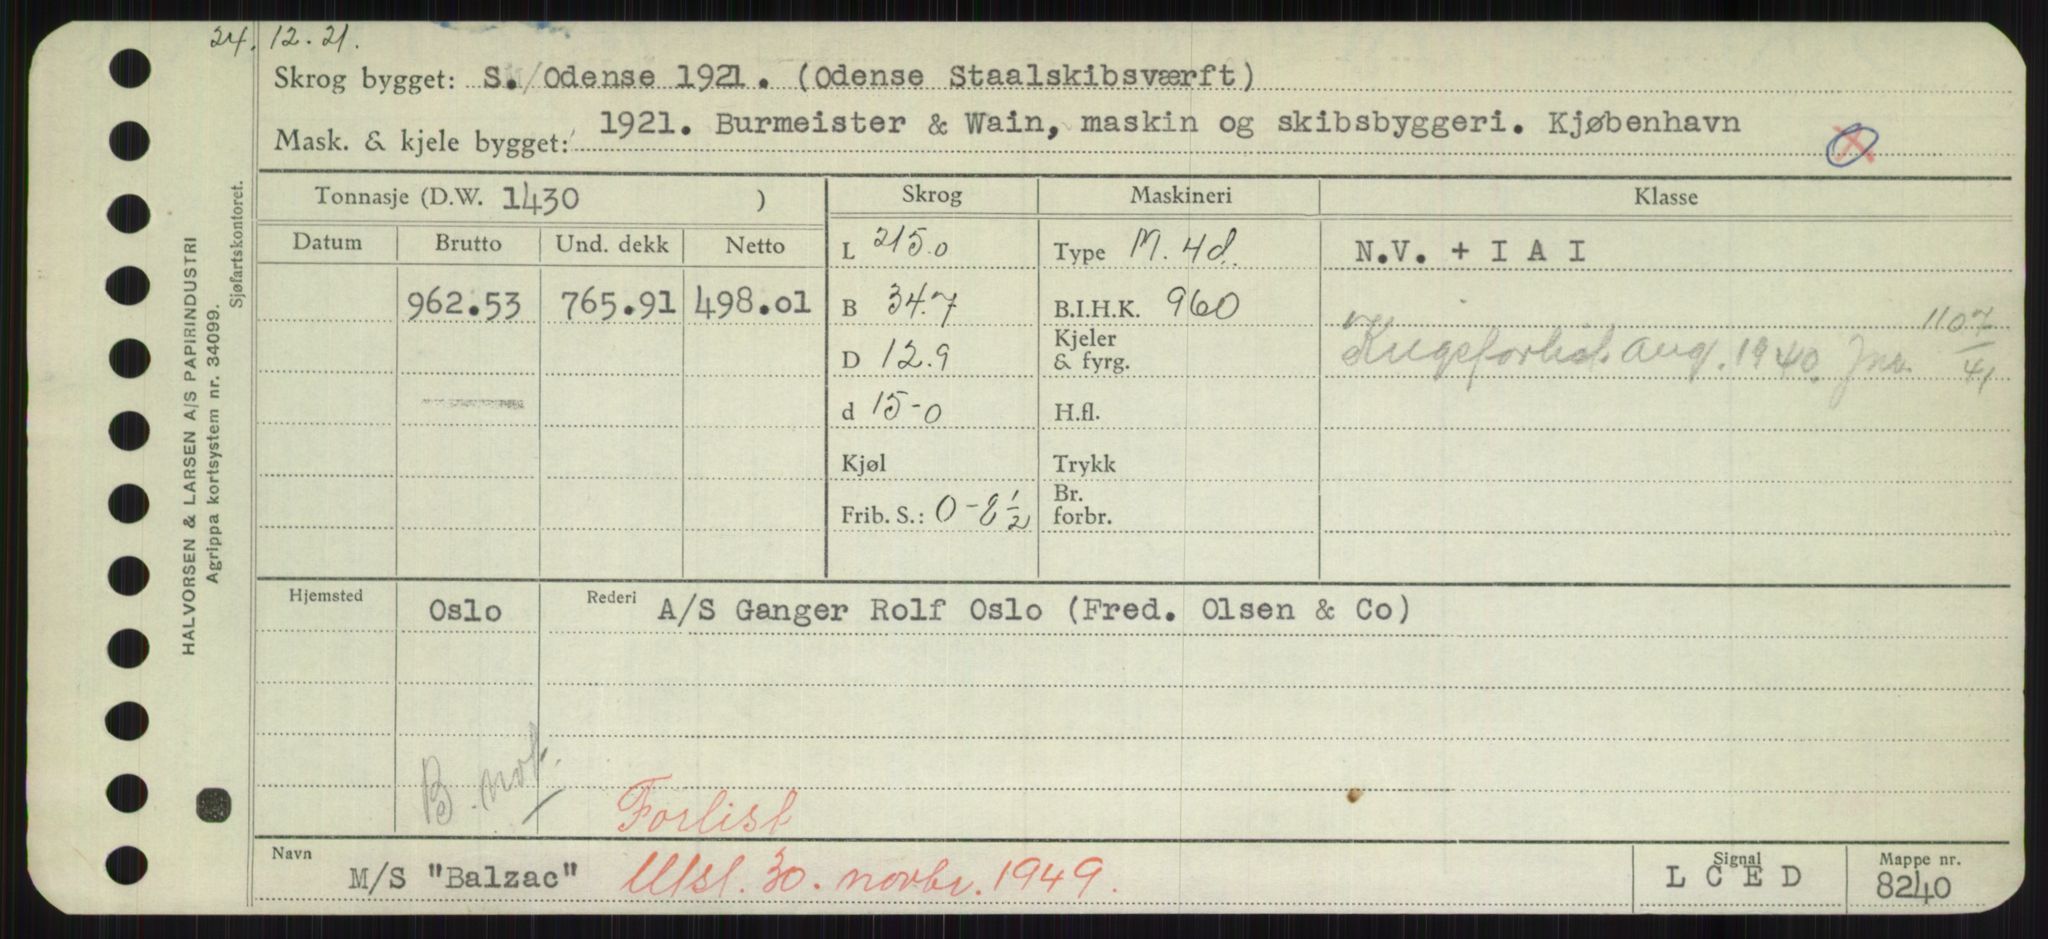 24.12.21.
Skrog bygget: S. Odense 1921. (Odense Staalskibsværft)
Mask. & kjele bygget: 1921. Burmeister & Wain, maskin og skibsbyggeri. Kjøbenhavn
Tonnasje (D.W. 1430 ) Skrog Maskineri Klasse
Datum Brutto Und. dekk Netto L 215.0 Type M. 4d. N.V. + I A I
962.53 765.91 498.01 B 34.7 B.I.H.K. 960
Krigsforlist aug. 1940. Jnr. 1107/41
D 12.9 Kjeler & fyrg.
d 15-0 H.fl.
Kjøl Trykk
Frib. S.: 0-8 1/2 Br. forbr.
Hjemsted Oslo Rederi A/S Ganger Rolf Oslo (Fred. Olsen & Co)
B. not.
Forlist
Navn M/S "Balzac" Utsl. 30. novbr. 1949. Signal L C E D Mappe nr. 8240
HALVORSEN & LARSEN A/S PAPIRINDUSTRI
Agrippa kortsystem nr. 34099.
Sjøfartskontoret.